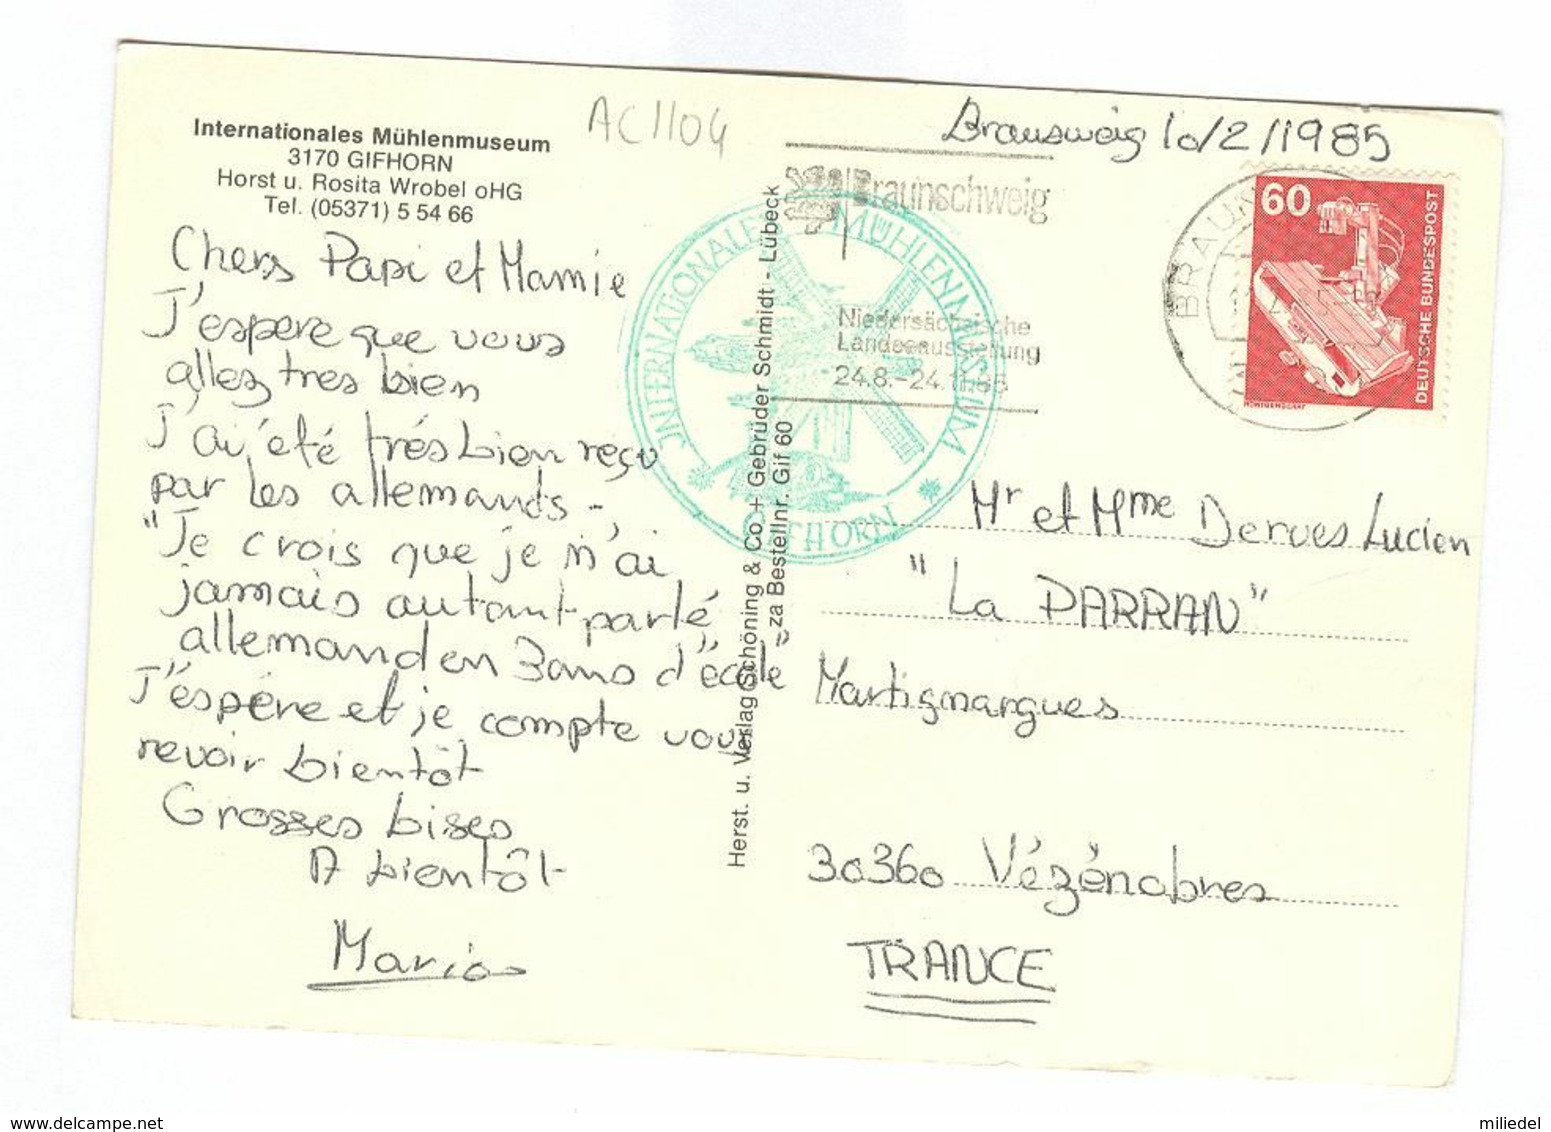 Internationales Mühlenmuseum
3170 GIFHORN
Horst u. Rosita Wrobel oHG
Tel. (05371) 5 54 66
AC1104
Chers Papi et Mamie
J'espere que vous
allez tres bien
J'ai été trés bien reçu
par les allemands -
"Je crois que je n'ai
jamais autant parlé
allemand en 3 ans d'école"
J'éspére et je compte vous
revoir bientôt
Grosses bises
A bientôt
Herst. u. Verlag Schöning & Co + Gebrüder Schmidt - Lübeck
za Bestellnr. Gif 60
INTERNATIONALES MÜHLENMUSEUM
GIFHORN
Braunschweig
Niedersächsische
Landesausstellung
24.8.-24.11.85
Brausweig 10/2/1985
BRAUN
60
DEUTSCHE BUNDESPOST
RÖNTGENGERÄT
Mr et Mme Derves Lucien
"La PARRAN"
Martignargues
30360 Vézénobres
FRANCE
delcampe.net
miliedel